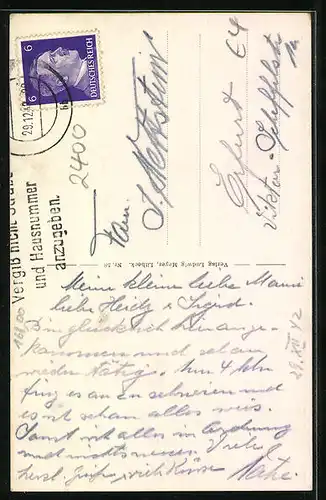 6
6
DEUTSCHES REICH
29.12.42
Vergiß nicht Straße
und Hausnummer
anzugeben.
2400
Fam.
Erfurt
Viktor-Scheffelstr
Verlag Ludwig Meyer, Lübeck. Nr. 50
Meine kleine liebe Mausi
liebe Heidy & Sigrid.
Bin glücklich hier ange-
kommen und schon
wieder tätig. Um 4 Uhr
fing es an zu schneien und
es ist schon alles weis.
Sonst ist alles in Ordnung
und nichts neues. Viele
herzl. Grüße viele Küsse
29. XII 42